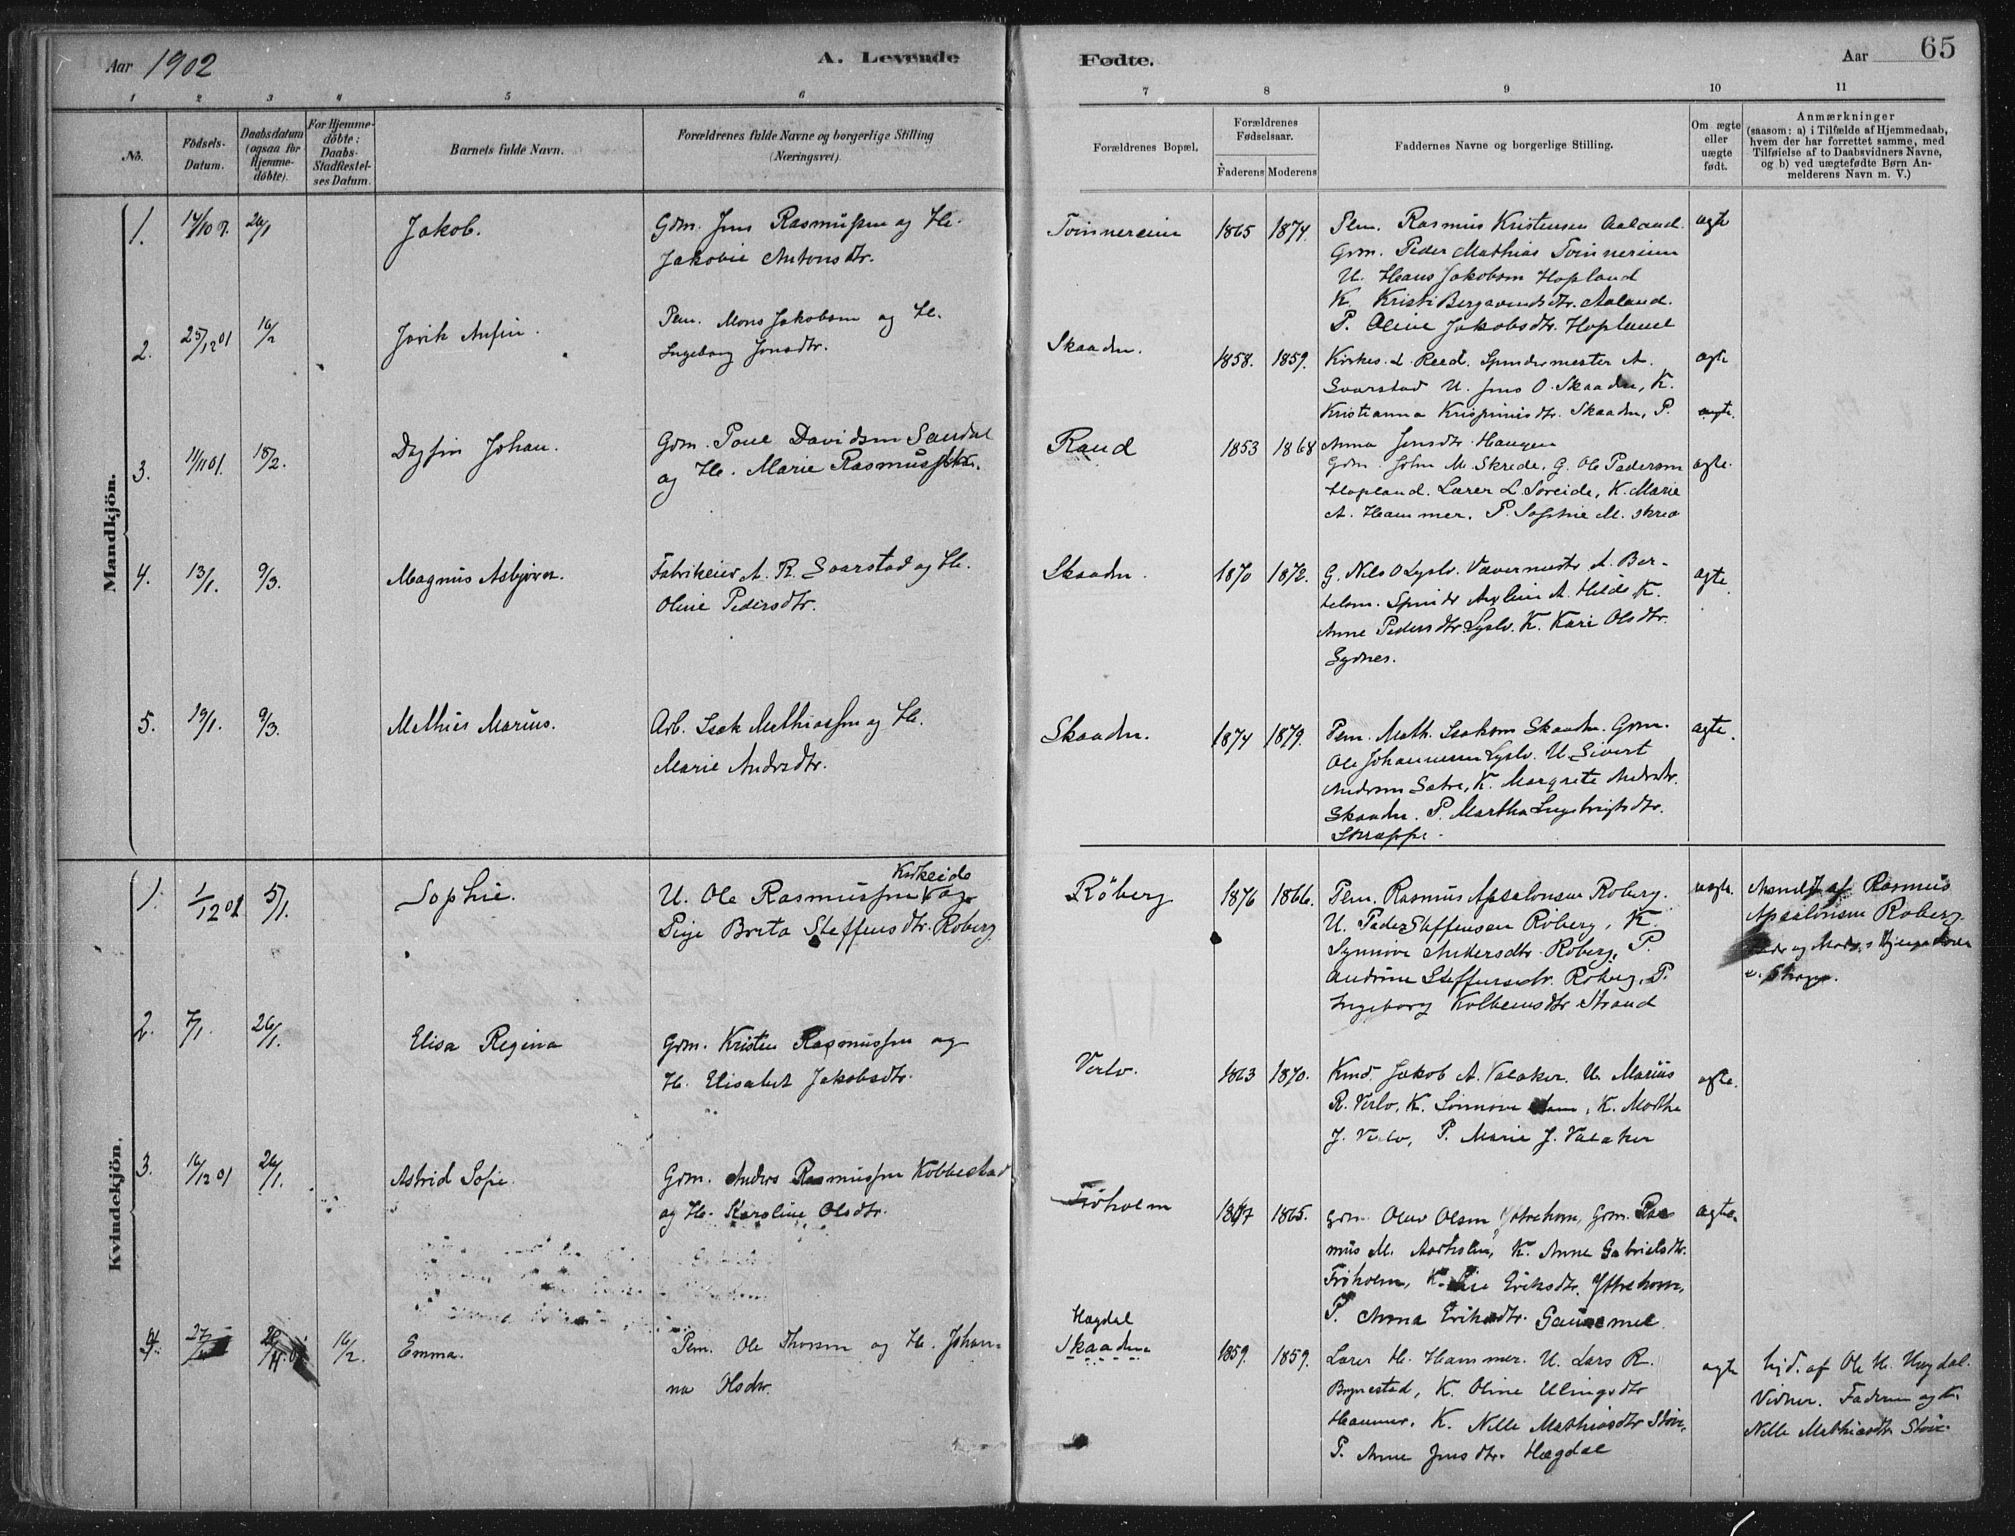 Aar 1902
A. Levende
Fødte.
Aar
65
1 2 3 4 5 6
7 8 9 10 11
No.
Födsels-
Datum.
Daabsdatum
(ogsaa for
Hjemme-
döbte).
For Hjemme-
döbte:
Daabs-
Stadfæstel-
ses Datum.
Barnets fulde Navn.
Forældrenes fulde Navne og borgerlige Stilling
(Næringsvei).
Forældrenes Bopæl.
Forældrenes
Fødselsaar.
Faderens Moderens
Faddernes Navne og borgerlige Stilling.
Om ægte
eller
uægte
født.
Anmærkninger
(saasom: a) i Tilfælde af Hjemmedaab,
hvem der har forrettet samme, med
Tilføielse af to Daabsvidners Navne,
og b) ved uægtefødte Børn An-
melderens Navn m. V.)
Mandkjön.
1. 26/1 Jakob. Gdm. Jens Rasmussen og H.
Jakobie Antonsdtr.
Tvinnereim 1865 1874. Pem. Rasmus Kristensen Aaland. ægte
Grm. Peder Mathias Tvinnereim
U. Hans Jakobsen Hopland
K. Kristi Aaland.
P. Oline Jakobsdtr. Hopland
2. 25/12 01 16/2 Anfin. Pem. Mons Jakobsen og H.
Ingeborg Jonsdtr.
Skaaden. 1858. 1859. Kirkes. L. Reed. Spindermester A. ægte
Svarstad U. Jens O. Skaaden, K.
Kristianna Skaaden, P. ægte.
Anna Jensdtr. Haugen
3. 11/11 01. Dagfin Johan. Gdm. Poul Davidsen Sandal
og H. Marie Rasmusdtr.
Rand 1853 1868
Grm. John M. Skrede. G. Ole Pedersen ægte.
Hopland. Lærer L. Søreide, K. Marie
A. Hammer. P. Sophie M. Skred
4. 13/1. 9/3. Magnus Asbjørn. Fabrikeier A. R. Svarstad og H.
Oline Pedersdtr.
Skaaden. 1870 1872. G. Nils O Lyslo. Vævermester A. Ber- ægte.
telsen. A. Hilde K.
Anne Pedersdtr Lyslo. K. Kari Olsdtr.
Sydnes.
5. 19/1. 9/3. Mathias Marius. Arb. Isak Mathiassen og H.
Marie Andrsdtr.
Skaaden. 1874 1879. Pem. Math. Isaksen Skaaden. Grm. ægte.
Ole Johannessen Lyslo. U. Sivert
Andersen Sætre, K. Margrete Andrsdtr.
Skaaden. P. Martha Ingebrigtsdtr.
Skrappe.
Kvindekjön.
1. 1/12 01 5/1. Sophie. U. Ole Rasmussen Kirkeide og
Pige Brita Steffensdtr. Roberg
Röberg 1876 1866. Pem. Rasmus Apsalonsen Roberg. uægte. Anmeldt af Rasmus
U. Peder Steffensen Roberg, K. Apsalonsen Roberg.
Synnøve Andersdtr. Roberg, P.
Andrine Steffensdtr. Röberg, P.
Ingeborg Kolbeinsdtr Strand
2. 7/1. 26/1. Elisa Regina Grm. Kristen Rasmussen og
H. Elisabet Jakobsdtr.
Verlo. 1863 1870. Kmd. Jakob A. Valaker. U. Marius ægte.
R. Verlo, K. Sønnøve, K. Marthe
J. Verlo, P. Marie J. Valaker
3. 16/12 01 26/1. Astrid Sofie. Grm. Anders Rasmussen Kobbestad
og H. Karoline Olsdtr.
Frøholm 1867 1865. Grm. Oluv Olsen Ytrehorn, Grm. Ras ægte
mus M. Aarholm, K. Anne Gabrielsdtr.
Frøholm, K. Eriksdtr. Ytrehorn,
P. Anna Eriksdtr. Gausemel
4. 27/ 16/2. Emma. Pem. Ole Thorsen og H. Johan-
na Olsdtr.
Hægdal
Skaaden 1859. 1859. Lærer H. Hammer. U. Lars R. ægte hjd. af Ole U. Hægdal.
Brynestad, K. Oline Elingsdtr Vidner. Faderen og K.
Hammer. K. Nille Mathiasdtr Støve, Nille Mathiasdtr Støve.
P. Anne Jensdtr. Hægdal